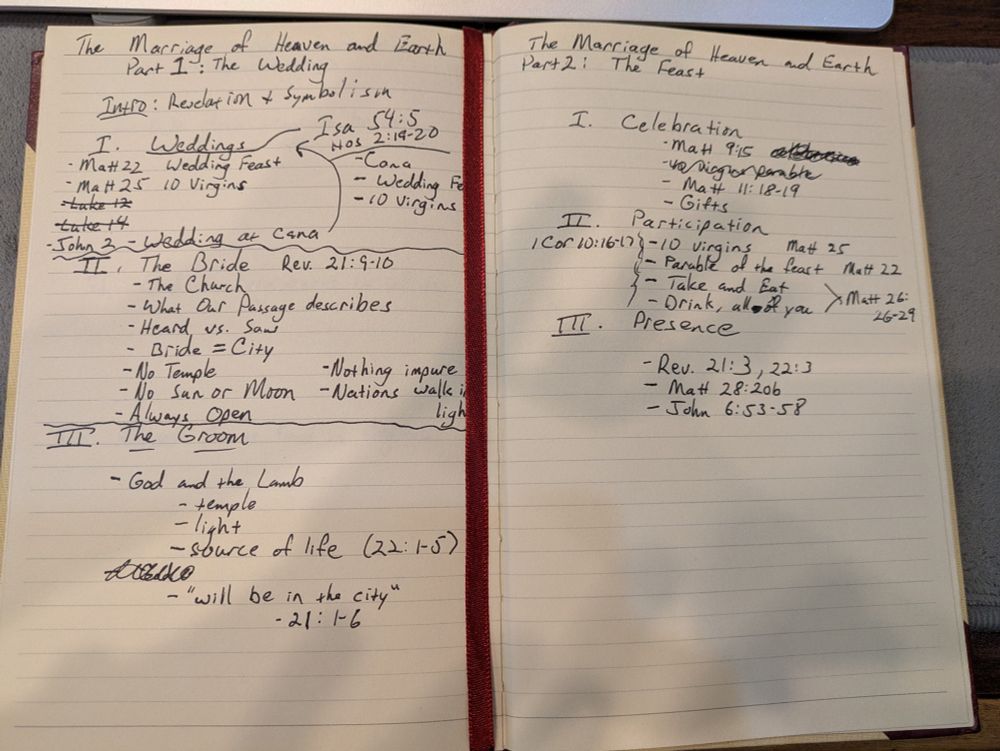 The Marriage of Heaven and Earth
Part 1: The Wedding
Intro: Revelation + Symbolism
I. Weddings
Isa 54:5
Hos 2:19-20
- Matt 22 Wedding Feast
- Matt 25 10 Virgins
- Luke 12
- Luke 14
- John 2 - Wedding at Cana
- Cana
- Wedding Fe
- 10 Virgins
II. The Bride Rev. 21:9-10
- The Church
- What Our Passage describes
- Heard vs. Saw
- Bride = City
- No Temple
- No Sun or Moon
- Always Open
- Nothing impure
- Nations walk i
ligh
III. The Groom
- God and the Lamb
- temple
- light
- source of life (22:1-5)
- "will be in the city"
- 21:1-6
The Marriage of Heaven and Earth
Part 2: The Feast
I. Celebration
- Matt 9:15
- Matt 11:18-19
- Gifts
II. Participation
1 Cor 10:16-17
- 10 virgins Matt 25
- Parable of the feast Matt 22
- Take and Eat
- Drink, all of you
Matt 26:
26-29
III. Presence
- Rev. 21:3, 22:3
- Matt 28:20b
- John 6:53-58